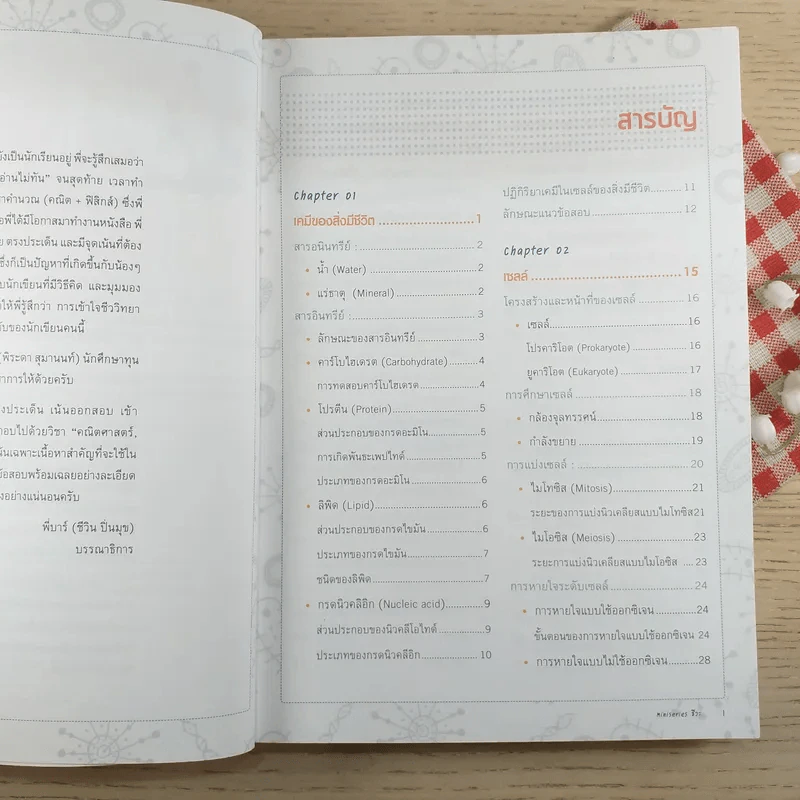 ังเป็นนักเรียนอยู่ พี่จะรู้สึกเสมอว่า
อ่านไม่ทัน" จนสุดท้าย เวลาทำ
าคำนวณ (คณิต + ฟิสิกส์) ซึ่งพี่
อพี่ได้มีโอกาสมาทำงานหนังสือ พี่
ย ตรงประเด็น และมีจุดเน้นที่ต้อง
ซึ่งก็เป็นปัญหาที่เกิดขึ้นกับน้องๆ
บนักเขียนที่มีวิธีคิด และมุมมอง
าให้พี่รู้สึกว่า การเข้าใจชีววิทยา
ับของนักเขียนคนนี้
(พิระดา สุมานนท์) นักศึกษาทุน
าการให้ด้วยครับ
งประเด็น เน้นออกสอบ เข้า
อบไปด้วยวิชา "คณิตศาสตร์,
นเฉพาะเนื้อหาสำคัญที่จะใช้ใน
ข้อสอบพร้อมเฉลยอย่างละเอียด
งอย่างแน่นอนครับ
พี่บาร์ (ชีวิน ปิ่นมุข)
บรรณาธิการ
สารบัญ
Chapter 01
เคมีของสิ่งมีชีวิต ........................1
สารอนินทรีย์ : ............................ 2
• น้ำ (Water) ............................2
• แร่ธาตุ (Mineral) .....................2
สารอินทรีย์ : .............................. 3
• ลักษณะของสารอินทรีย์ ..............3
• คาร์โบไฮเดรต (Carbohydrate) ........4
การทดสอบคาร์โบไฮเดรต ...............4
• โปรตีน (Protein) .......................5
ส่วนประกอบของกรดอะมิโน ............5
การเกิดพันธะเพปไทด์ ..................5
ประเภทของกรดอะมิโน .................6
• ลิพิด (Lipid) ............................6
ส่วนประกอบของกรดไขมัน .............6
ประเภทของกรดไขมัน ..................7
ชนิดของลิพิด ............................7
• กรดนิวคลิอิก (Nucleic acid) ...........9
ส่วนประกอบของนิวคลีโอไทด์ ..........9
ประเภทของกรดนิวคลีอิก ............... 10
ปฏิกิริยาเคมีในเซลล์ของสิ่งมีชีวิต ........ 11
ลักษณะแนวข้อสอบ ....................... 12
Chapter 02
เซลล์ ......................................15
โครงสร้างและหน้าที่ของเซลล์ ............ 16
• เซลล์ .....................................16
โปรคาริโอต (Prokaryote) ............... 16
ยูคาริโอต (Eukaryote) ................... 17
การศึกษาเซลล์ ............................ 18
• กล้องจุลทรรศน์ .........................18
• กำลังขยาย ...............................19
การแบ่งเซลล์ : ............................ 20
• ไมโทซิส (Mitosis) .......................21
ระยะของการแบ่งนิวเคลียสแบบไมโทซิส21
• ไมโอซิส (Meiosis) .......................23
ระยะการแบ่งนิวเคลียสแบบไมโอซิส .... 23
การหายใจระดับเซลล์ ...................... 24
• การหายใจแบบใช้ออกซิเจน ............ 24
ขั้นตอนของการหายใจแบบใช้ออกซิเจน 24
• การหายใจแบบไม่ใช้ออกซิเจน ..........28
Miniseries ชีวะ